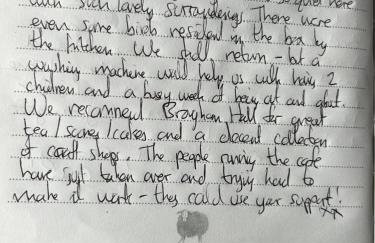 with such lovely surroundings. There were
even some birds resident in the box by
the kitchen. We shall return - but a
washing machine would help us with having 2
children and a busy week of being out and about.
We recommend Brougham Hall for great
tea/scones/cakes and a decent collection
of craft shops. The people running the cafe
have just taken over and trying hard to
make it work - they could use your support! xx